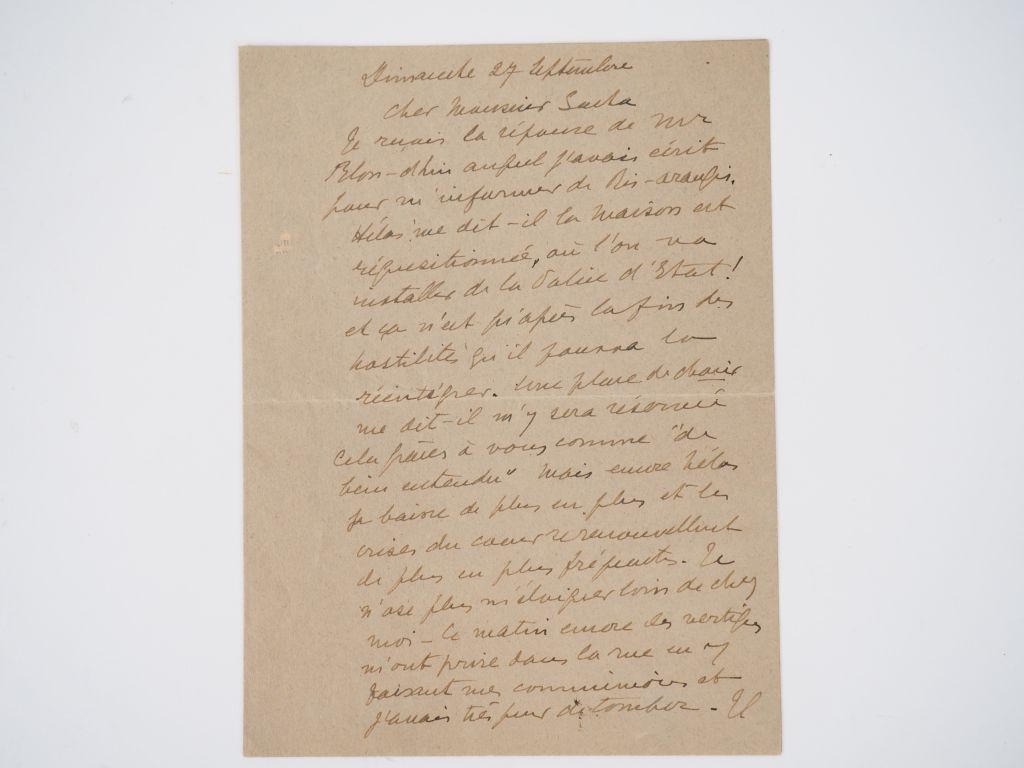 Dimanche 27 Septembre
Cher Monsieur Sacha
Je reçois la réponse de Mr
Blon-dhin auquel j'avais écrit
pour m'informer de Ris-orangis.
Hélas! me dit-il la maison est
réquisitionnée, où l'on va
installer de la Police d'Etat!
et ça n'est qu'après la fin des
hostilités qu'il pourra la
réintégrer. Une place de choix
me dit-il m'y sera réservée
Cela grâces à vous comme "de
bien entendu" Mais encore hélas
je baisse de plus en plus et les
crises du coeur se renouvellent
de plus en plus fréquentes. Je
n'ose plus m'éloigner loin de chez
moi - Ce matin encore des vertiges
m'ont prise dans la rue en y
faisant mes commissions et
j'avais très peur de tomber - Il